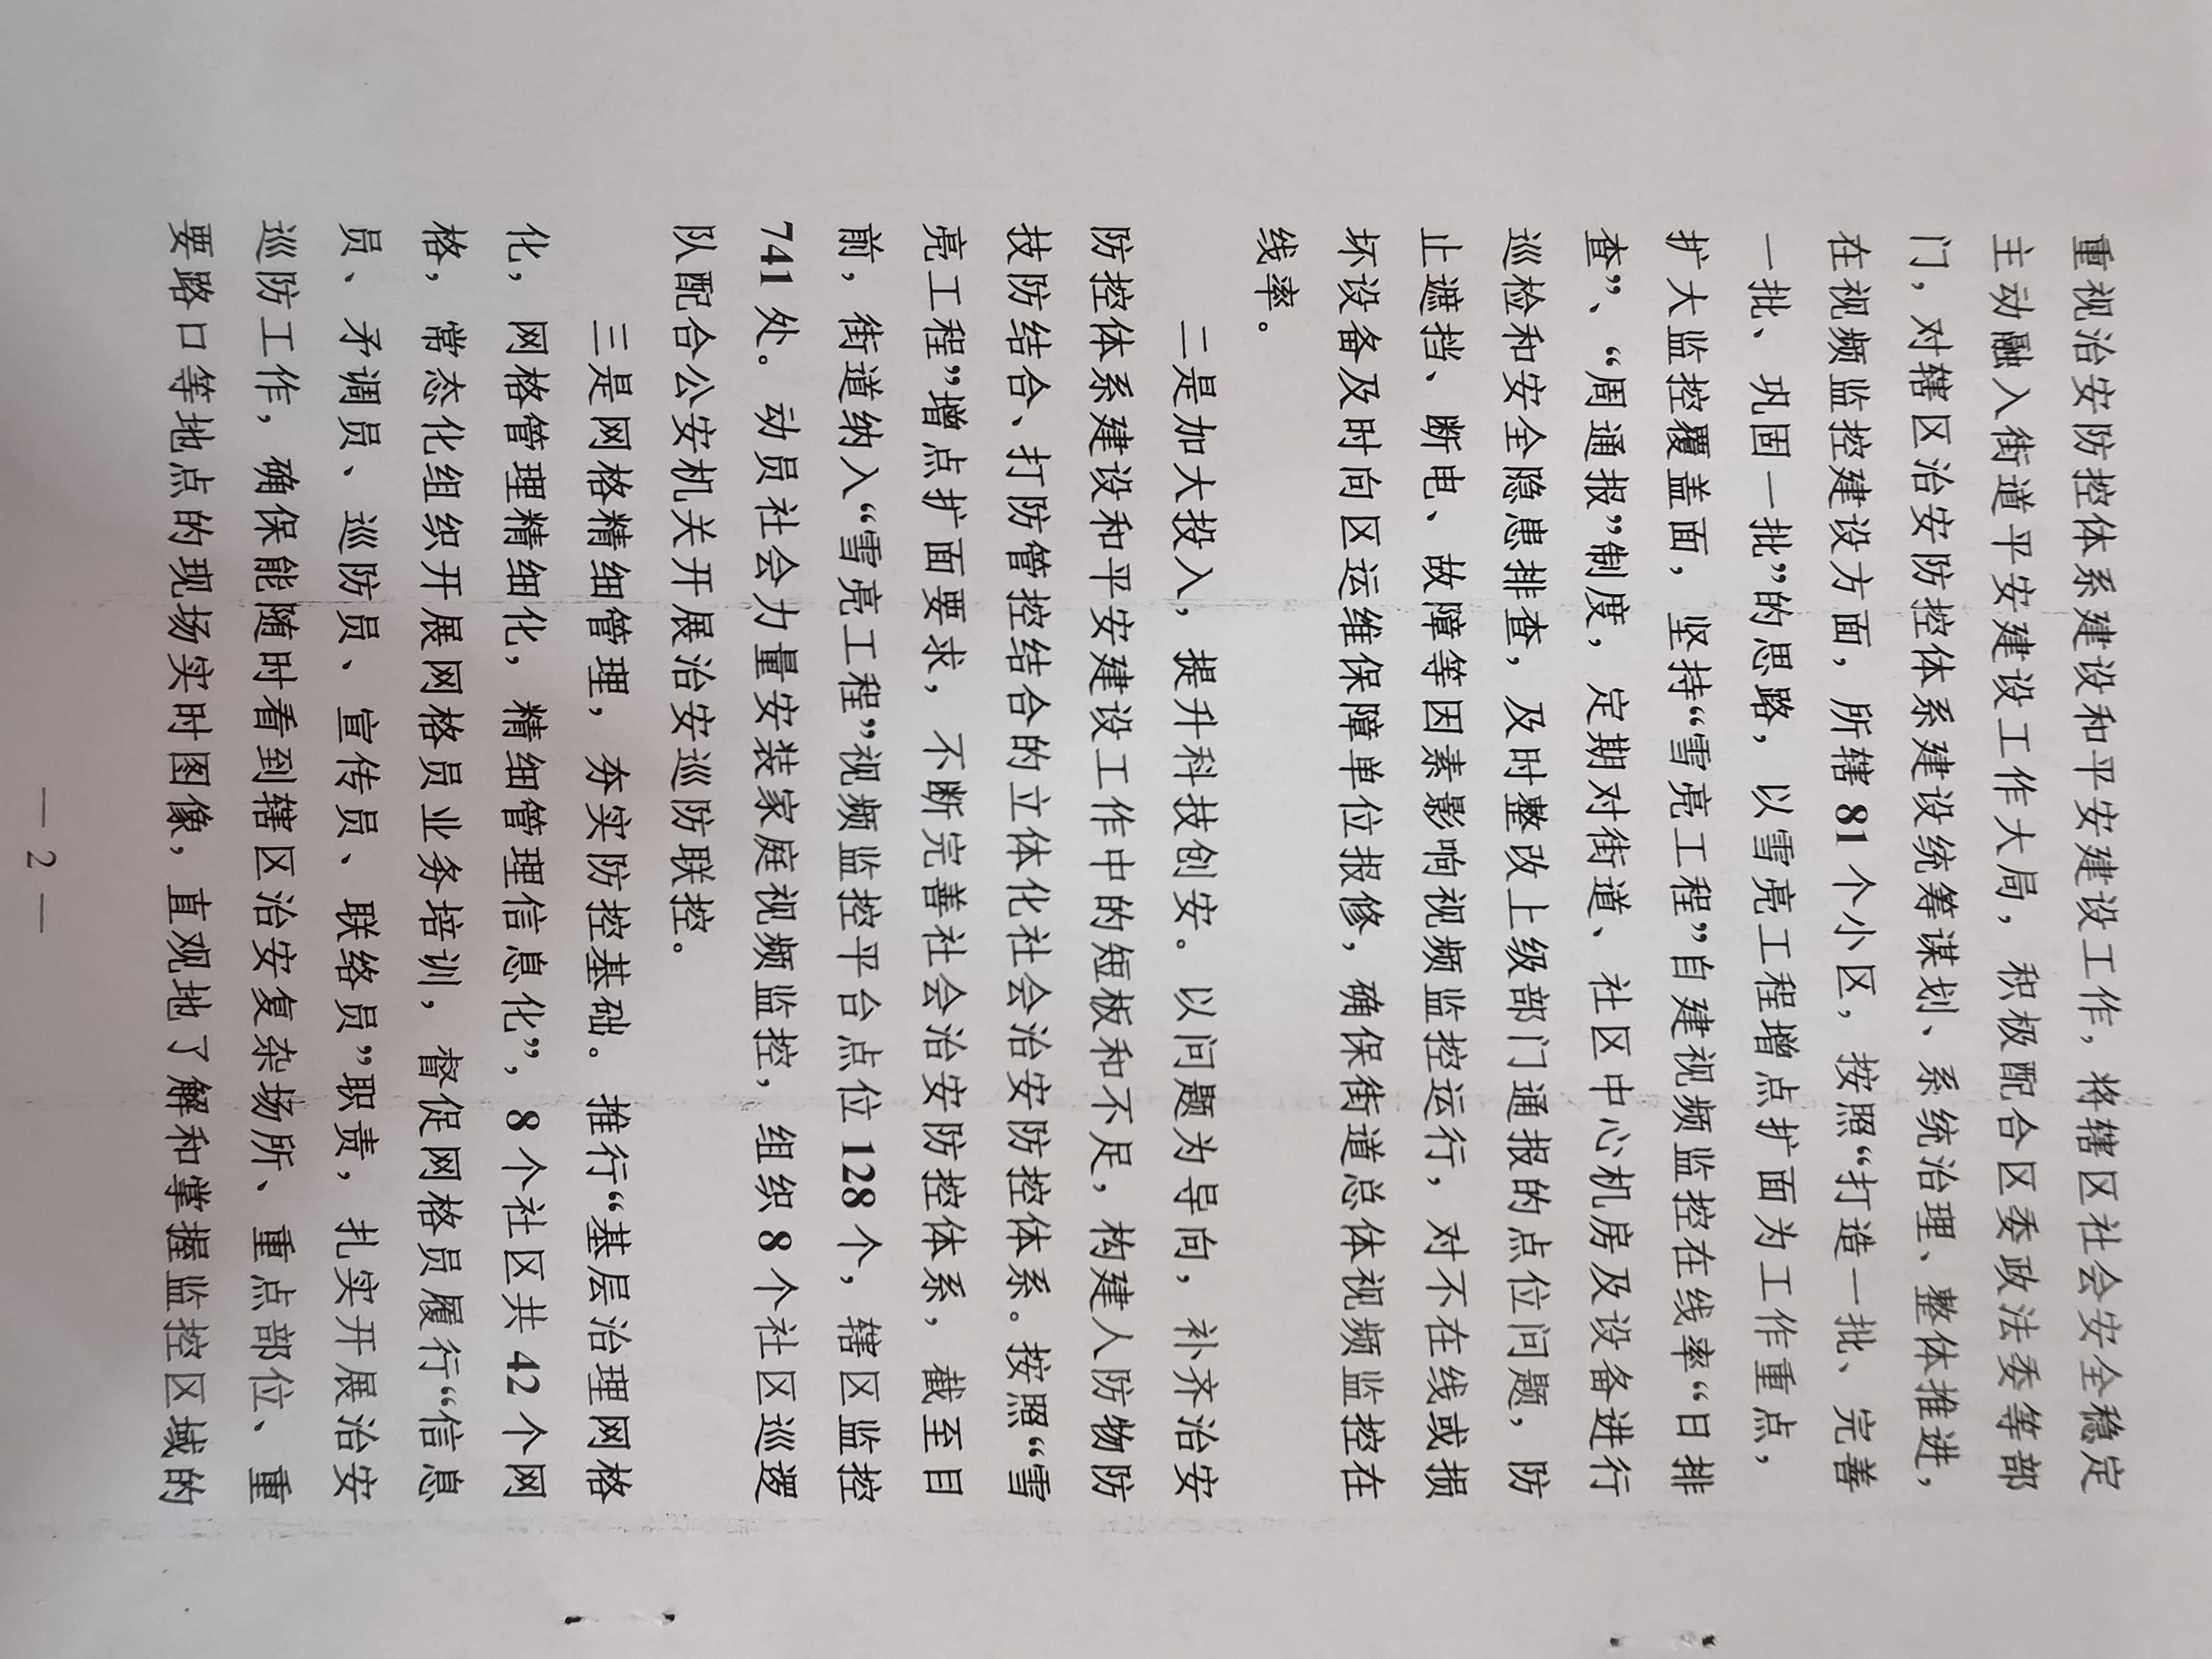 重视治安防控体系建设和平安建设工作，将辖区社会安全稳定
主动融入街道平安建设工作大局，积极配合区委政法委等部
门，对辖区治安防控体系建设统筹谋划、系统治理、整体推进，
在视频监控建设方面，所辖 81 个小区，按照“打造一批、完善
一批、巩固一批”的思路，以雪亮工程增点扩面为工作重点，
扩大监控覆盖面，坚持“雪亮工程”自建视频监控在线率“日排
查”、“周通报”制度，定期对街道、社区中心机房及设备进行
巡检和安全隐患排查，及时整改上级部门通报的点位问题，防
止遮挡、断电、故障等因素影响视频监控运行，对不在线或损
坏设备及时向区运维保障单位报修，确保街道总体视频监控在
线率。
二是加大投入，提升科技创安。以问题为导向，补齐治安
防控体系建设和平安建设工作中的短板和不足，构建人防物防
技防结合、打防管控结合的立体化社会治安防控体系。按照“雪
亮工程”增点扩面要求，不断完善社会治安防控体系，截至目
前，街道纳入“雪亮工程”视频监控平台点位 128 个，辖区监控
741 处。动员社会力量安装家庭视频监控，组织 8 个社区巡逻
队配合公安机关开展治安巡防联控。
三是网格精细管理，夯实防控基础。推行“基层治理网格
化，网格管理精细化，精细管理信息化”，8 个社区共 42 个网
格，常态化组织开展网格员业务培训，督促网格员履行“信息
员、矛调员、巡防员、宣传员、联络员”职责，扎实开展治安
巡防工作，确保能随时看到辖区治安复杂场所、重点部位、重
要路口等地点的现场实时图像，直观地了解和掌握监控区域的
— 2 —